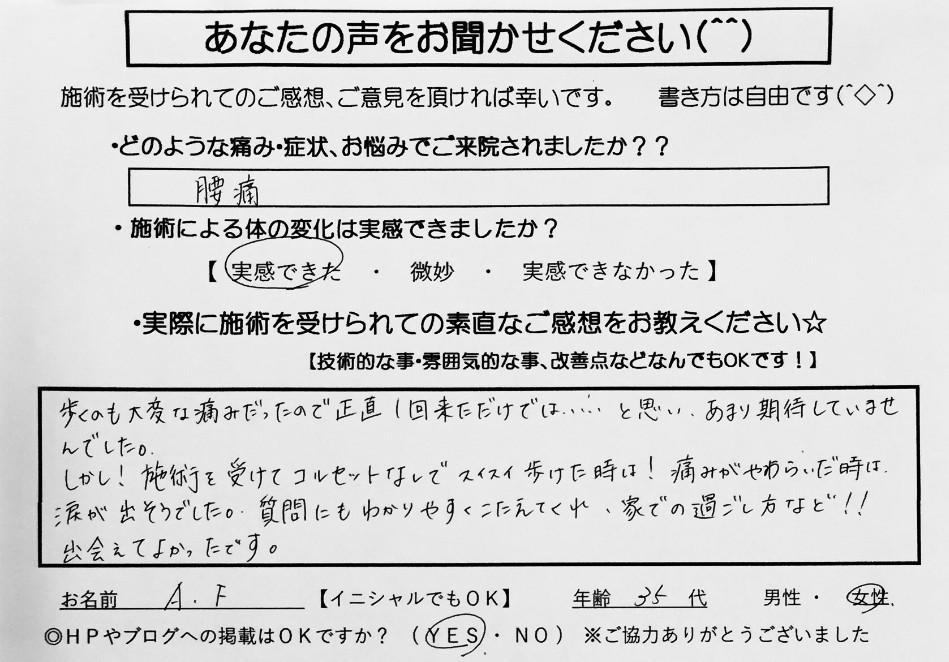 あなたの声をお聞かせください(^^)
施術を受けられてのご感想、ご意見を頂ければ幸いです。　書き方は自由です(^◇^)
・どのような痛み・症状、お悩みでご来院されましたか？？
腰痛
・施術による体の変化は実感できましたか？
【 実感できた ・ 微妙 ・ 実感できなかった 】
・実際に施術を受けられての素直なご感想をお教えください☆
【技術的な事・雰囲気的な事、改善点などなんでもOKです！】
歩くのも大変な痛みだったので正直1回来ただけでは……と思い、あまり期待していませ
んでした。
しかし！施術を受けてコルセットなしでスイスイ歩けた時は！痛みがやわらいだ時は、
涙が出そうでした。質問にもわかりやすくこたえてくれ、家での過ごし方など!!
出会えてよかったです。
お名前　A.F　【イニシャルでもOK】　年齢　35　代　男性・女性
◎HPやブログへの掲載はOKですか？（YES・NO）※ご協力ありがとうございました